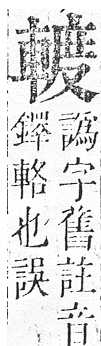 譌字舊註音
鐸輅也誤